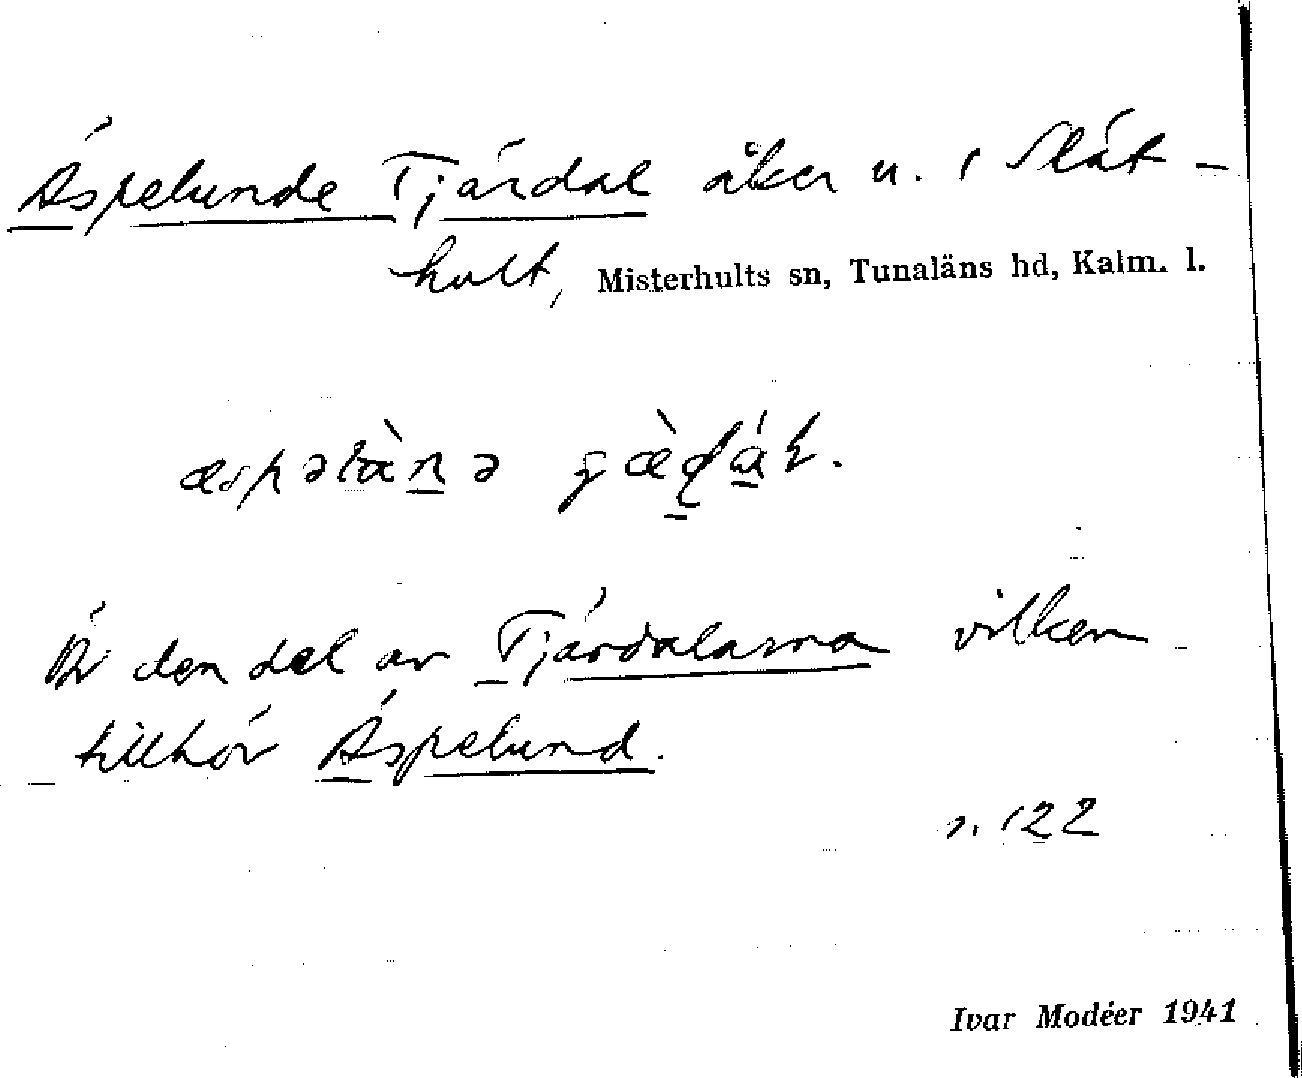 Äspelunde Tjärdal åker u. Slät-
hult, Misterhults sn, Tunaläns hd, Kalm. l.
Är den del av Tjärdalarna vilken
tillhör Äspelund.
s. 122
Ivar Modéer 1941